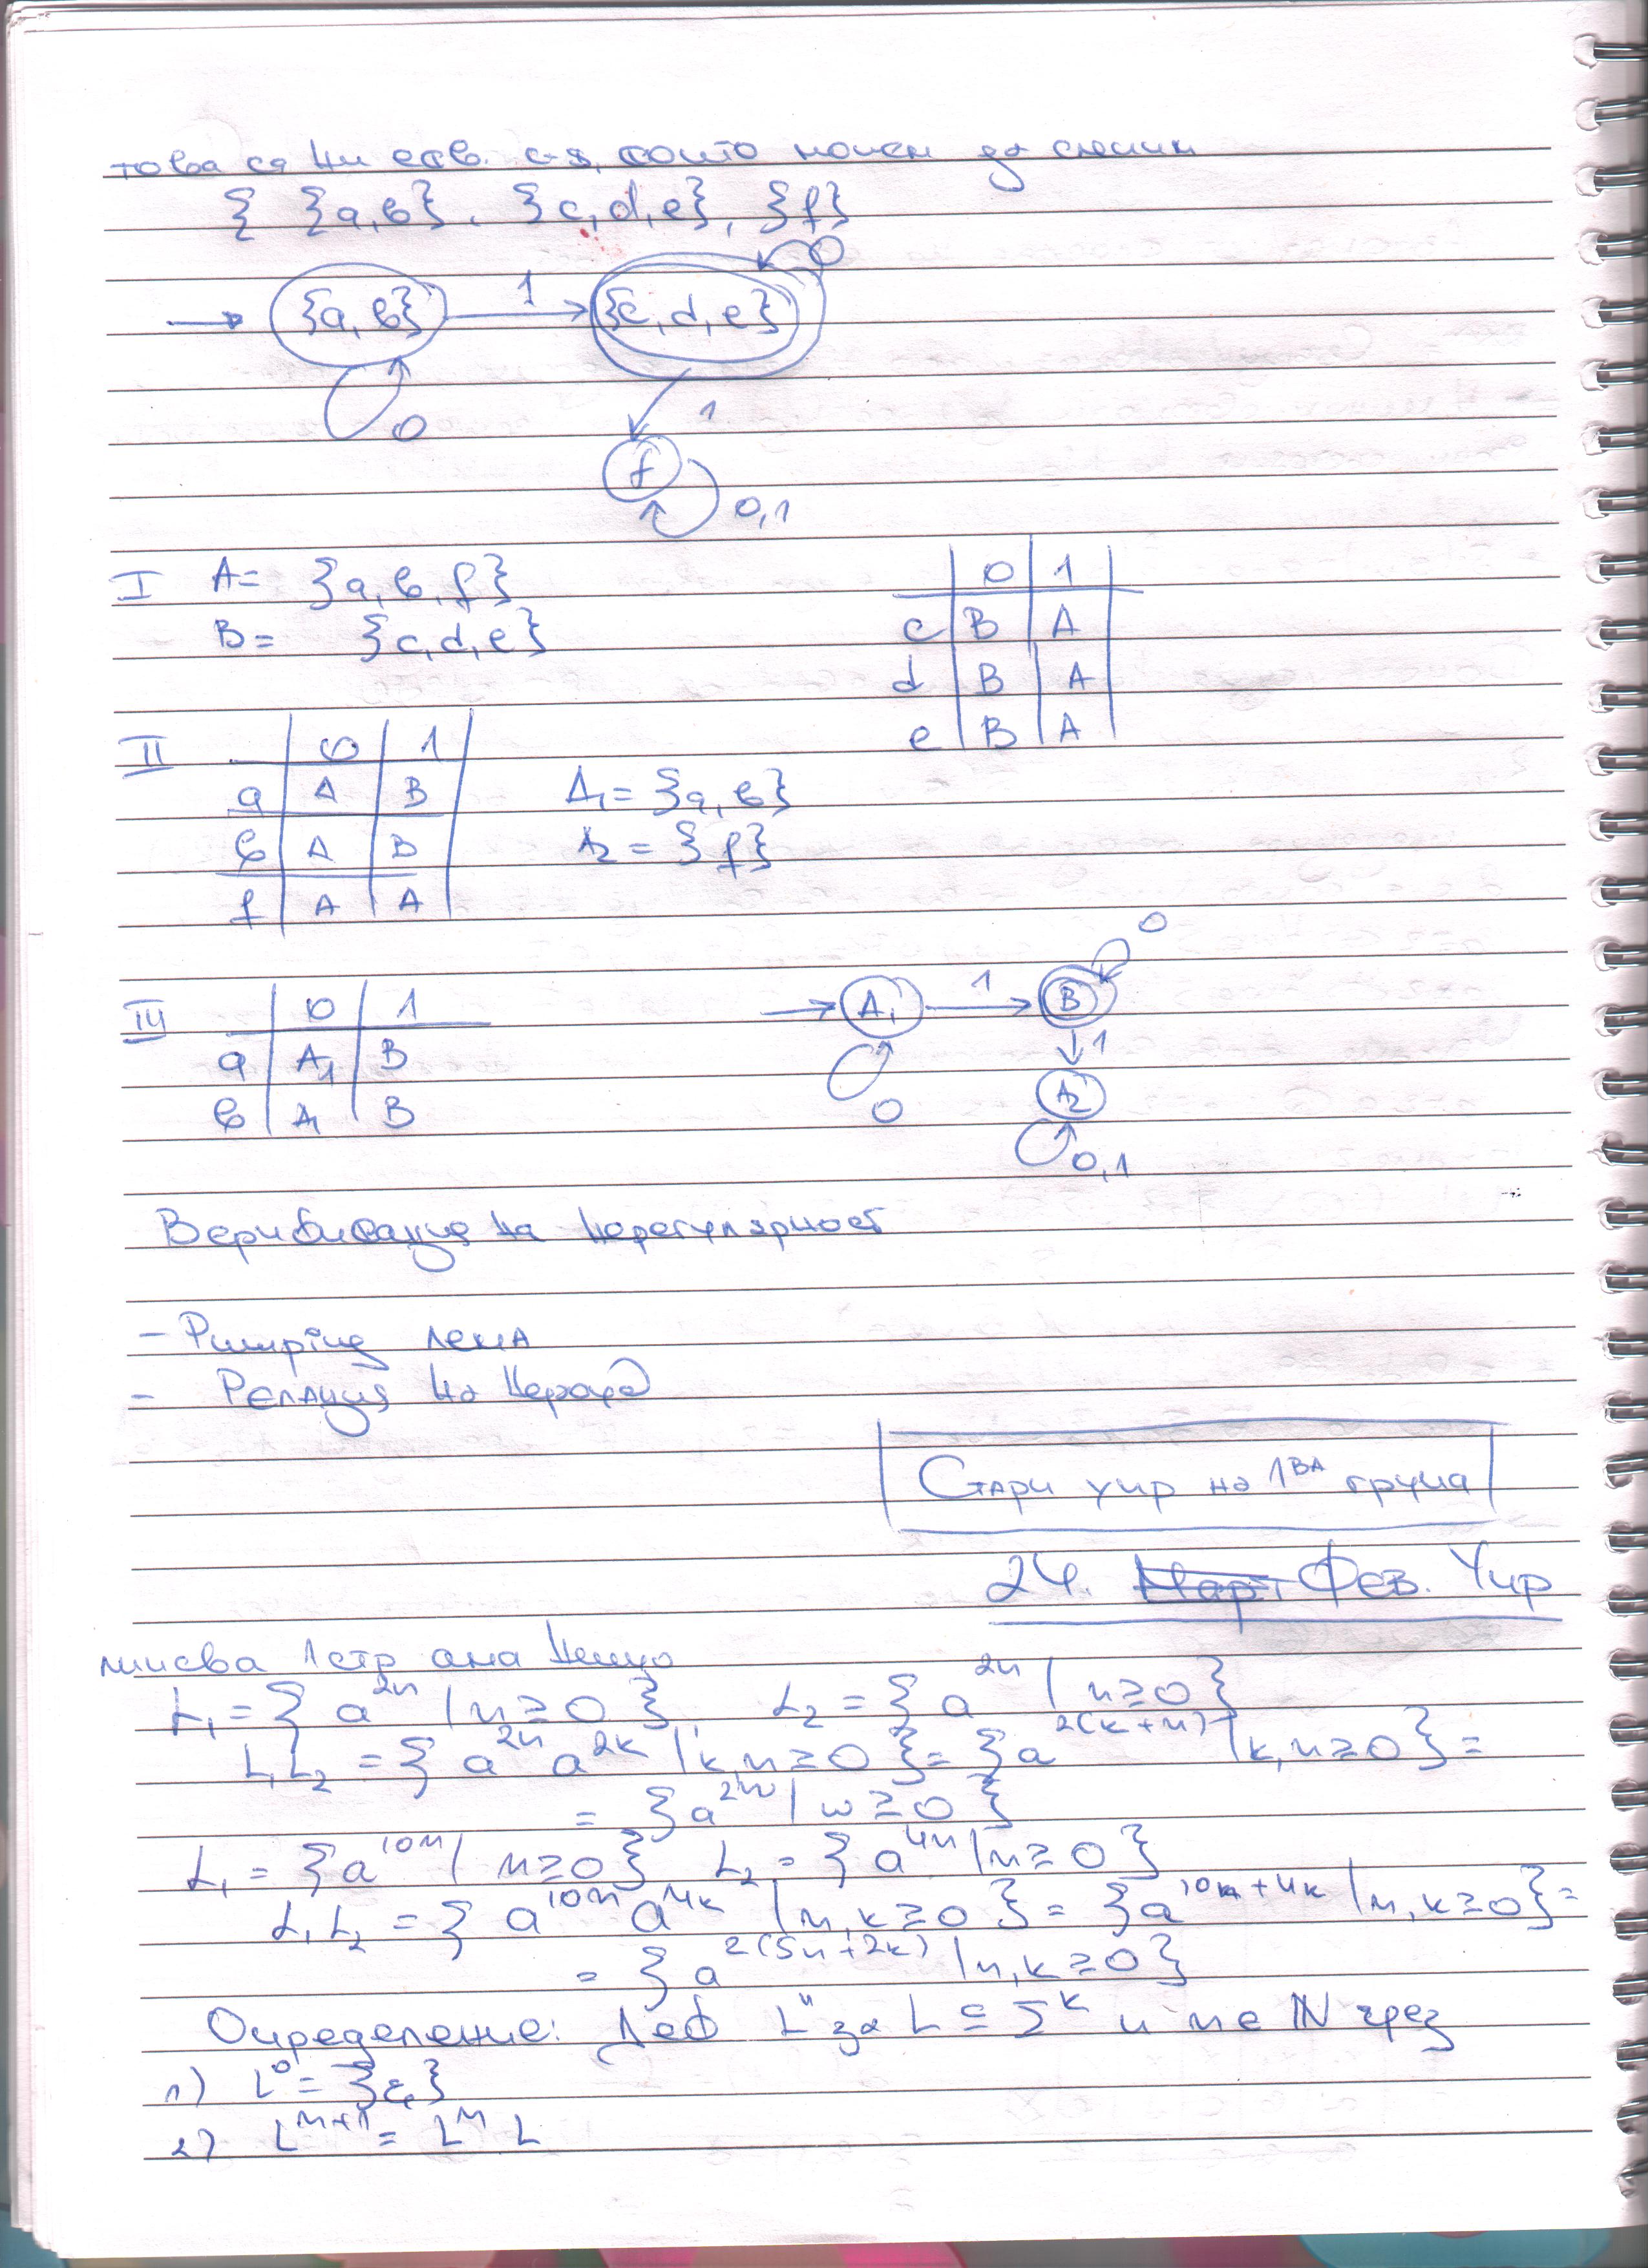 това са екв. с-я, които можем да слеем
{ {a,b}, {c,d,e}, {f}
{a,b} 1 {c,d,e} 0
0 1
f
0,1
I A= {a,b,f}
B= {c,d,e}
0 1
c B A
d B A
e B A
II 0 1
a A B
b A B
f A A
A1 = {a,b}
A2 = {f}
0
IV 0 1
a A1 B
b A1 B
A1 1 B
1
0 A2
0,1
Верификация на нерегулярност
- Pumping лема
- Релация на Нероуд
Стари упр на 1ва група
24. Март Фев. Упр
липсва 1стр ама нещо
L1 = { a^2n | n≥0 }, L2 = { a^2n | n≥0 }
L1L2 = { a^2n a^2k | k,n≥0 } = { a^2(k+n) | k,n≥0 } =
= { a^2w | w≥0 }
L1 = { a^10n | n≥0 } L2 = { a^4n | n≥0 }
L1L2 = { a^10n a^4k | n,k≥0 } = { a^10n+4k | n,k≥0 } =
= { a^2(5n+2k) | n,k≥0 }
Определение: Деф L^n за L ⊆ Σ^k и n ∈ ℕ чрез
1) L^0 = {ε}
2) L^n+1 = L^n L